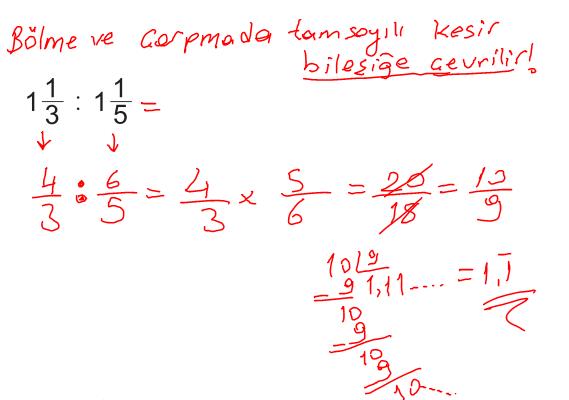 Bölme ve çarpmada tamsayılı kesir
bileşiğe çevrilir!
1 1/3 : 1 1/5 =
↓ ↓
4/3 : 6/5 = 4/3 x 5/6 = 20/18 = 10/9
10 | 9
- 9 1,11.... = 1,1̅
10
- 9
10
9
10....